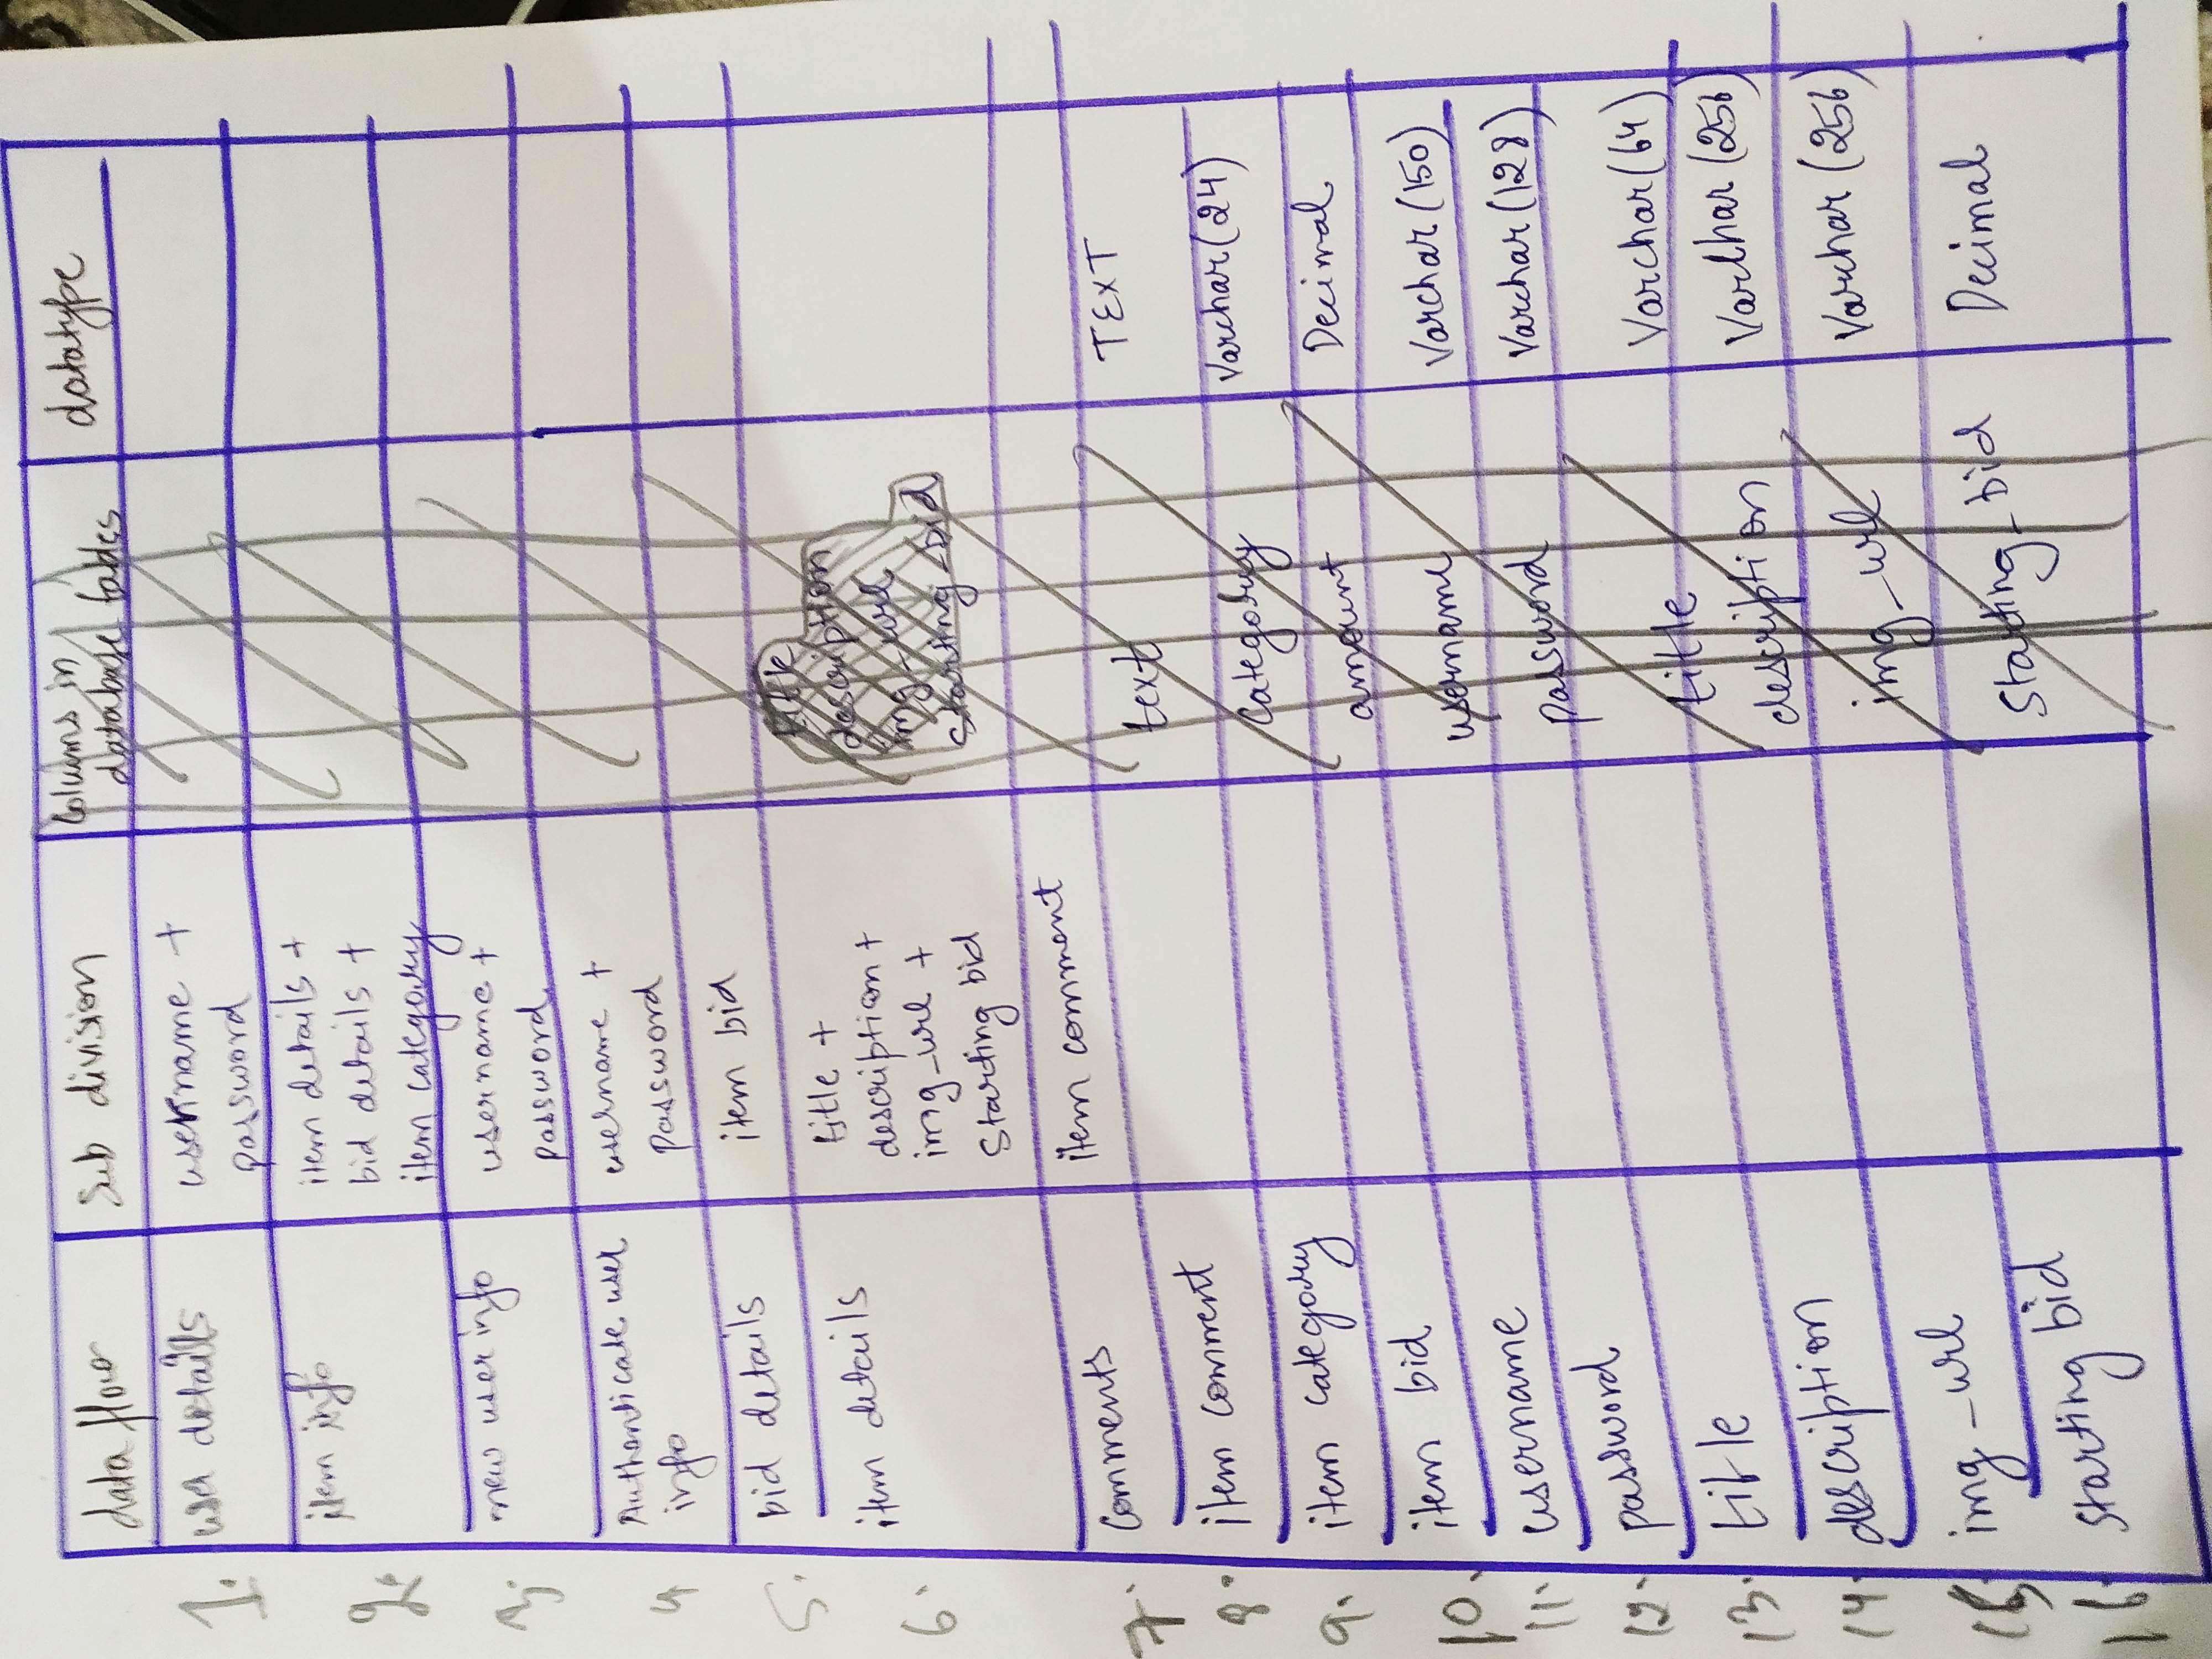 data flow
Sub division
Columns in
database tables
datatype
1.
user details
username +
password
2.
item info
item details +
bid details +
item category
3.
new user info
username +
password
4
Authenticate user
info
username +
password
5.
bid details
item bid
6.
item details
title +
description +
img_url +
Starting bid
title
description
img_url
Starting_bid
7.
Comments
item comment
8.
item comment
text
TEXT
9.
item category
Category
Varchar (24)
10.
item bid
amount
Decimal
11.
username
username
Varchar (150)
12.
password
password
Varchar (128)
13.
title
title
Varchar (64)
14.
description
description
Varchar (256)
15
img_url
img_url
Varchar (256)
16
Starting bid
Starting_bid
Decimal